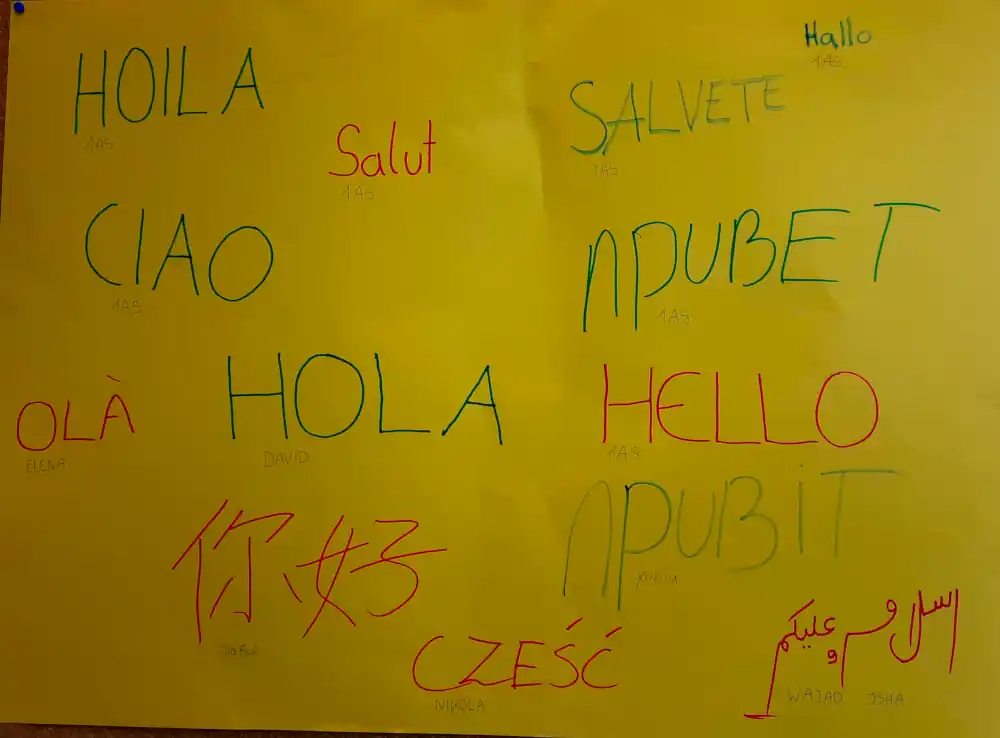 Hallo
1AS
HOILA
1AS
SALVETE
1AS
Salut
1AS
CIAO
1AS
ПРИВЕТ
1AS
OLÀ
ELENA
HOLA
DAVID
HELLO
1AS
ПРИВіТ
你好
CZEŚĆ
NIKOLA
اسلام و عليكم
WAJAD ISHA